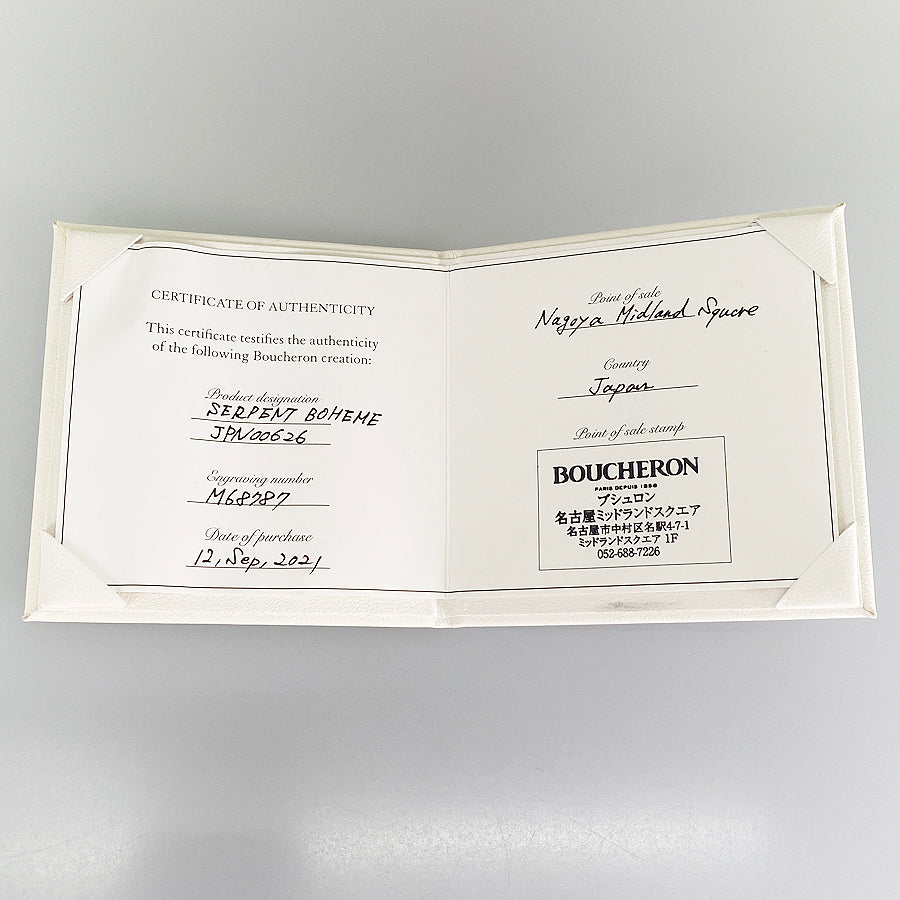 CERTIFICATE OF AUTHENTICITY
This certificate testifies the authenticity
of the following Boucheron creation:
Product designation
SERPENT BOHEME
JPN00626
Engraving number
M68787
Date of purchase
12, Sep, 2021
Point of sale
Nagoya Midland Square
Country
Japan
Point of sale stamp
BOUCHERON
PARIS DEPUIS 1858
ブシュロン
名古屋ミッドランドスクエア
名古屋市中村区名駅4-7-1
ミッドランドスクエア 1F
052-688-7226